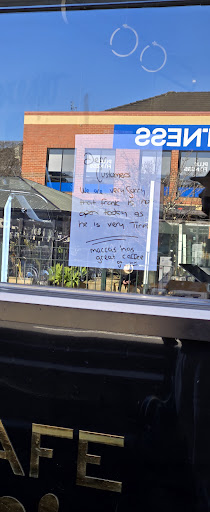 FITNESS
Dear
Customers
We are very Sorry
that Frank is not
open today as
he is very Tired
maccas has
great coffee
AFE